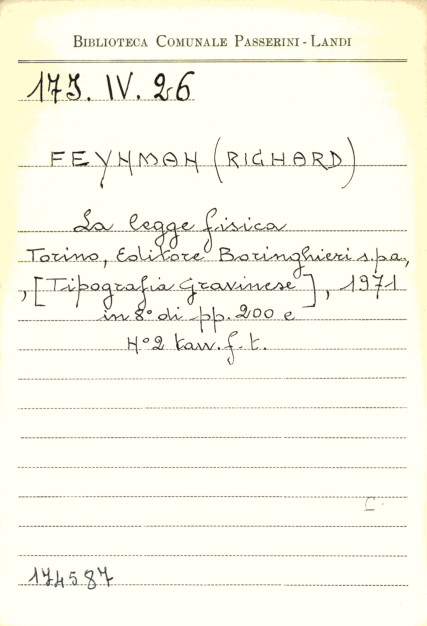 BIBLIOTECA COMUNALE PASSERINI - LANDI
173. IV. 26
FEYNMAN (RICHARD)
La legge fisica
Torino, Editore Boringhieri s.p.a.,
, [Tipografia Gravinese], 1971
in 8° di pp. 200 e
N° 2 tavv. f. t.
C.
174587